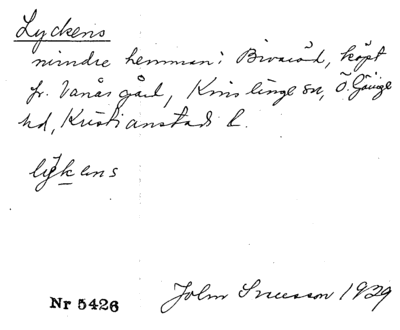 Lyckens
mindre hemman i Bivaröd, köpt
fr. Vanås gård, Knislinge sn, Ö. Göinge
hd, Kristianstads l.
lykens
Nr 5426
John 1929